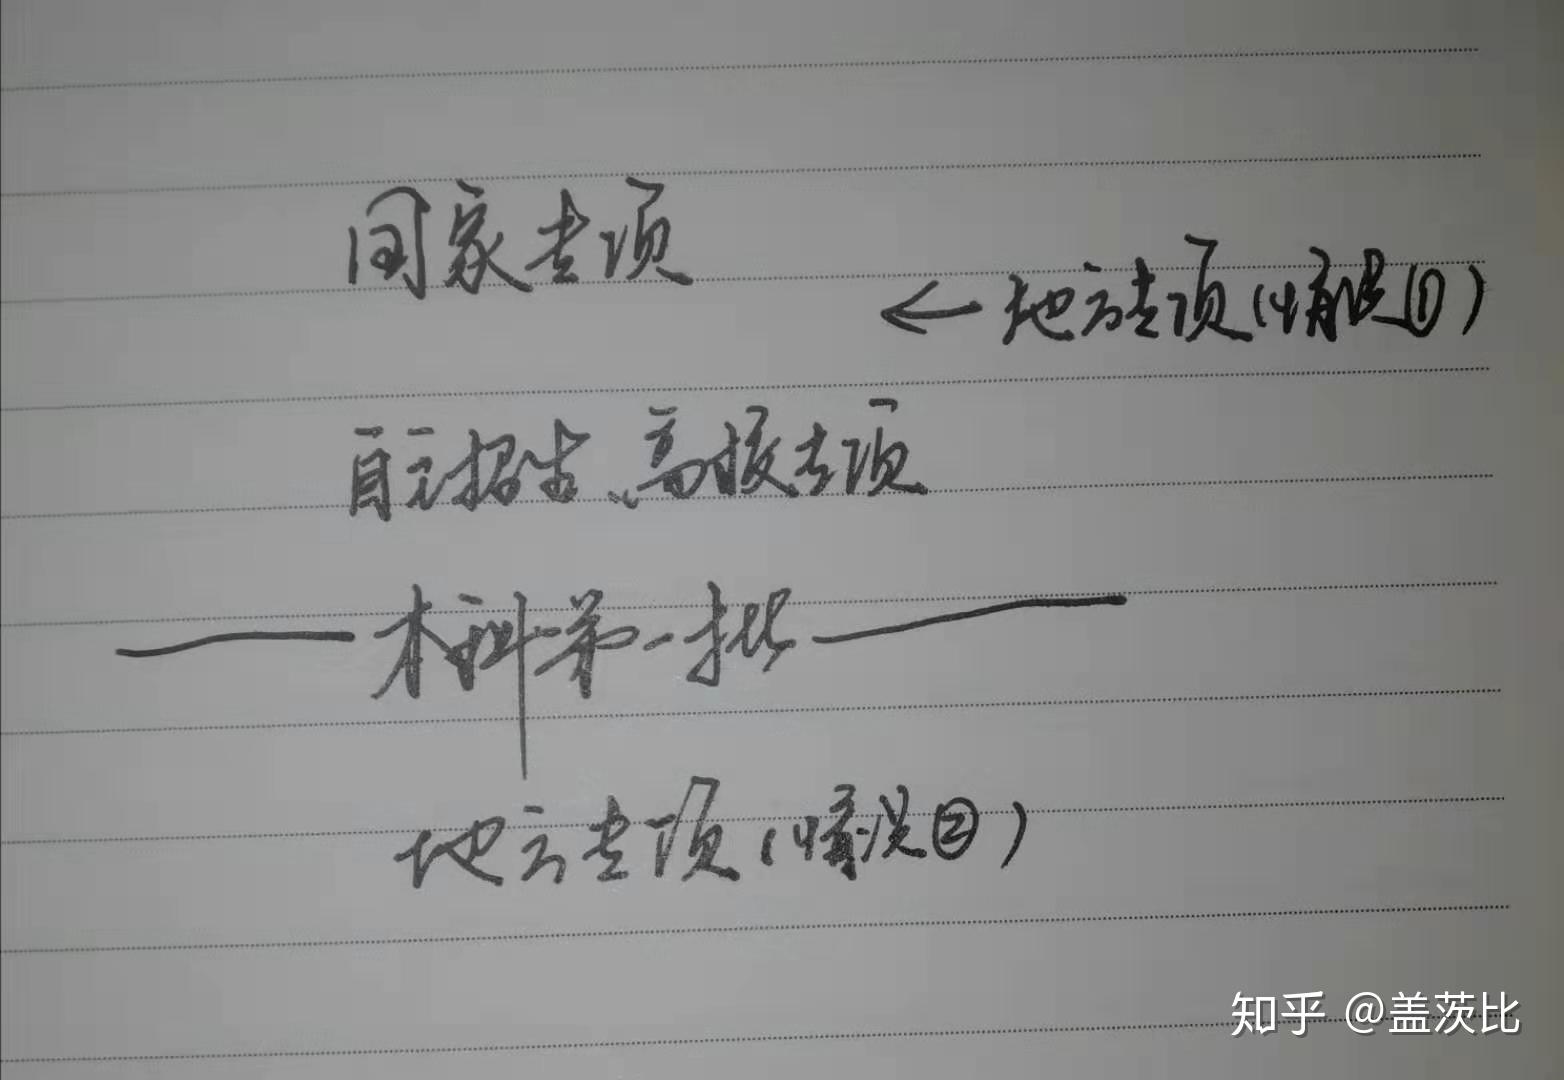 国家专项
←地方专项(情况①)
自主招生、高校专项
——本科第一批——
地方专项(情况②)
知乎 @盖茨比